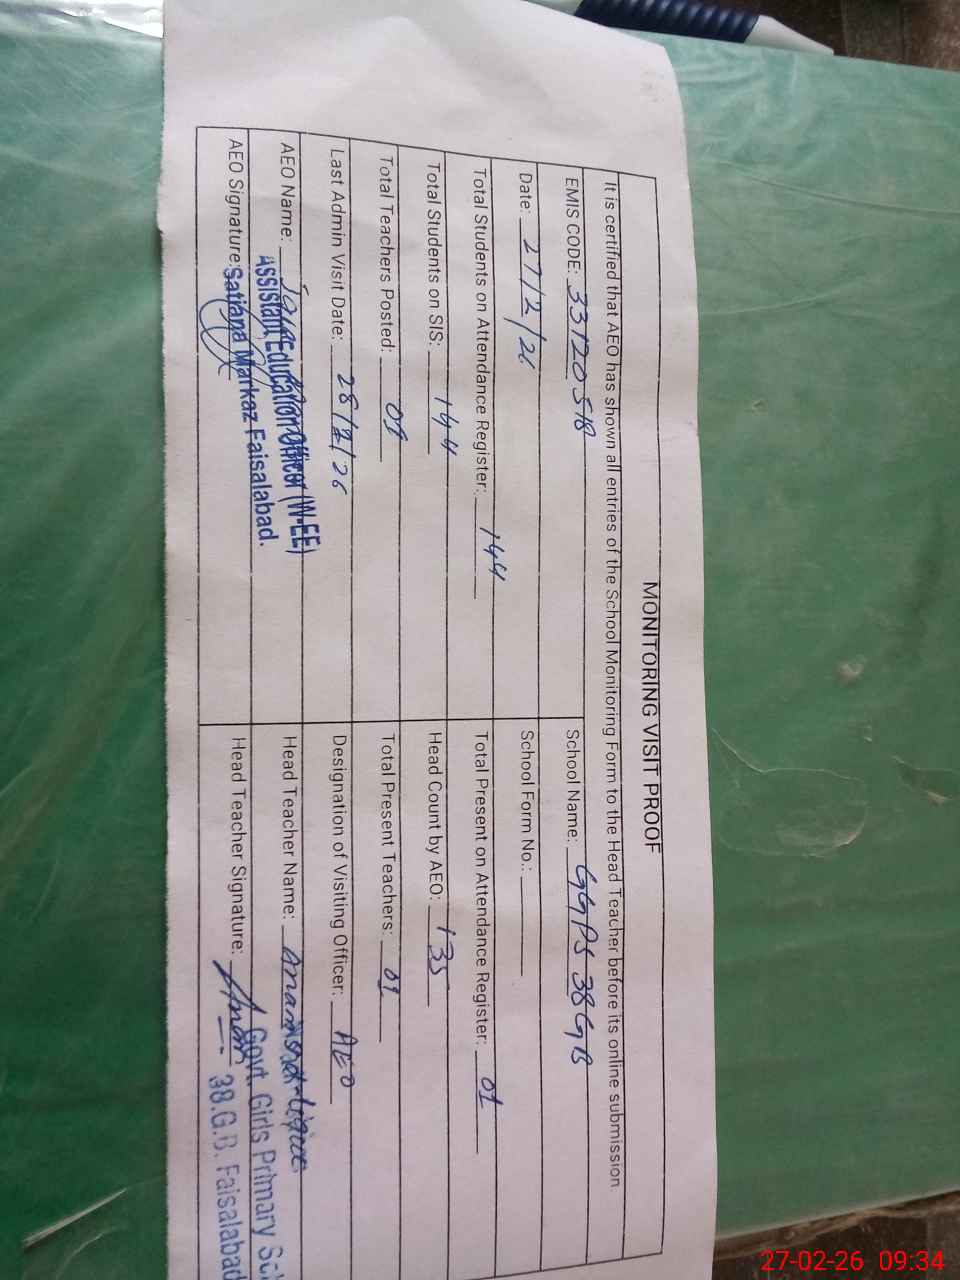 MONITORING VISIT PROOF
It is certified that AEO has shown all entries of the School Monitoring Form to the Head Teacher before its online submission.
EMIS CODE: 33120518 School Name: GGPS 38GB
Date: 27/2/26 School Form No.:
Total Students on Attendance Register: 144 Total Present on Attendance Register: 01
Total Students on SIS: 144 Head Count by AEO: 135
Total Teachers Posted: 01 Total Present Teachers: 01
Last Admin Visit Date: 28/2/26 Designation of Visiting Officer: AEO
AEO Name: Head Teacher Name:
Assistant Education Officer (W-EE)
AEO Signature: Head Teacher Signature:
Satiana Markaz Faisalabad.
Govt. Girls Primary Sc
38.G.B. Faisalabad
27-02-26 09:34